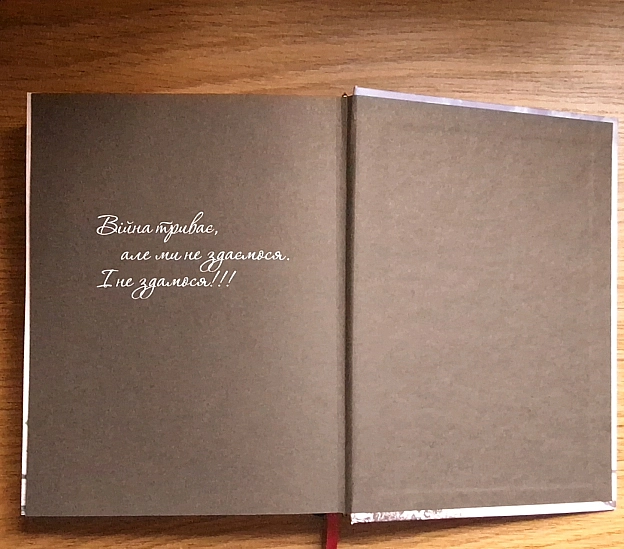 Війна триває,
але ми не здаємося.
І не здамося!!!